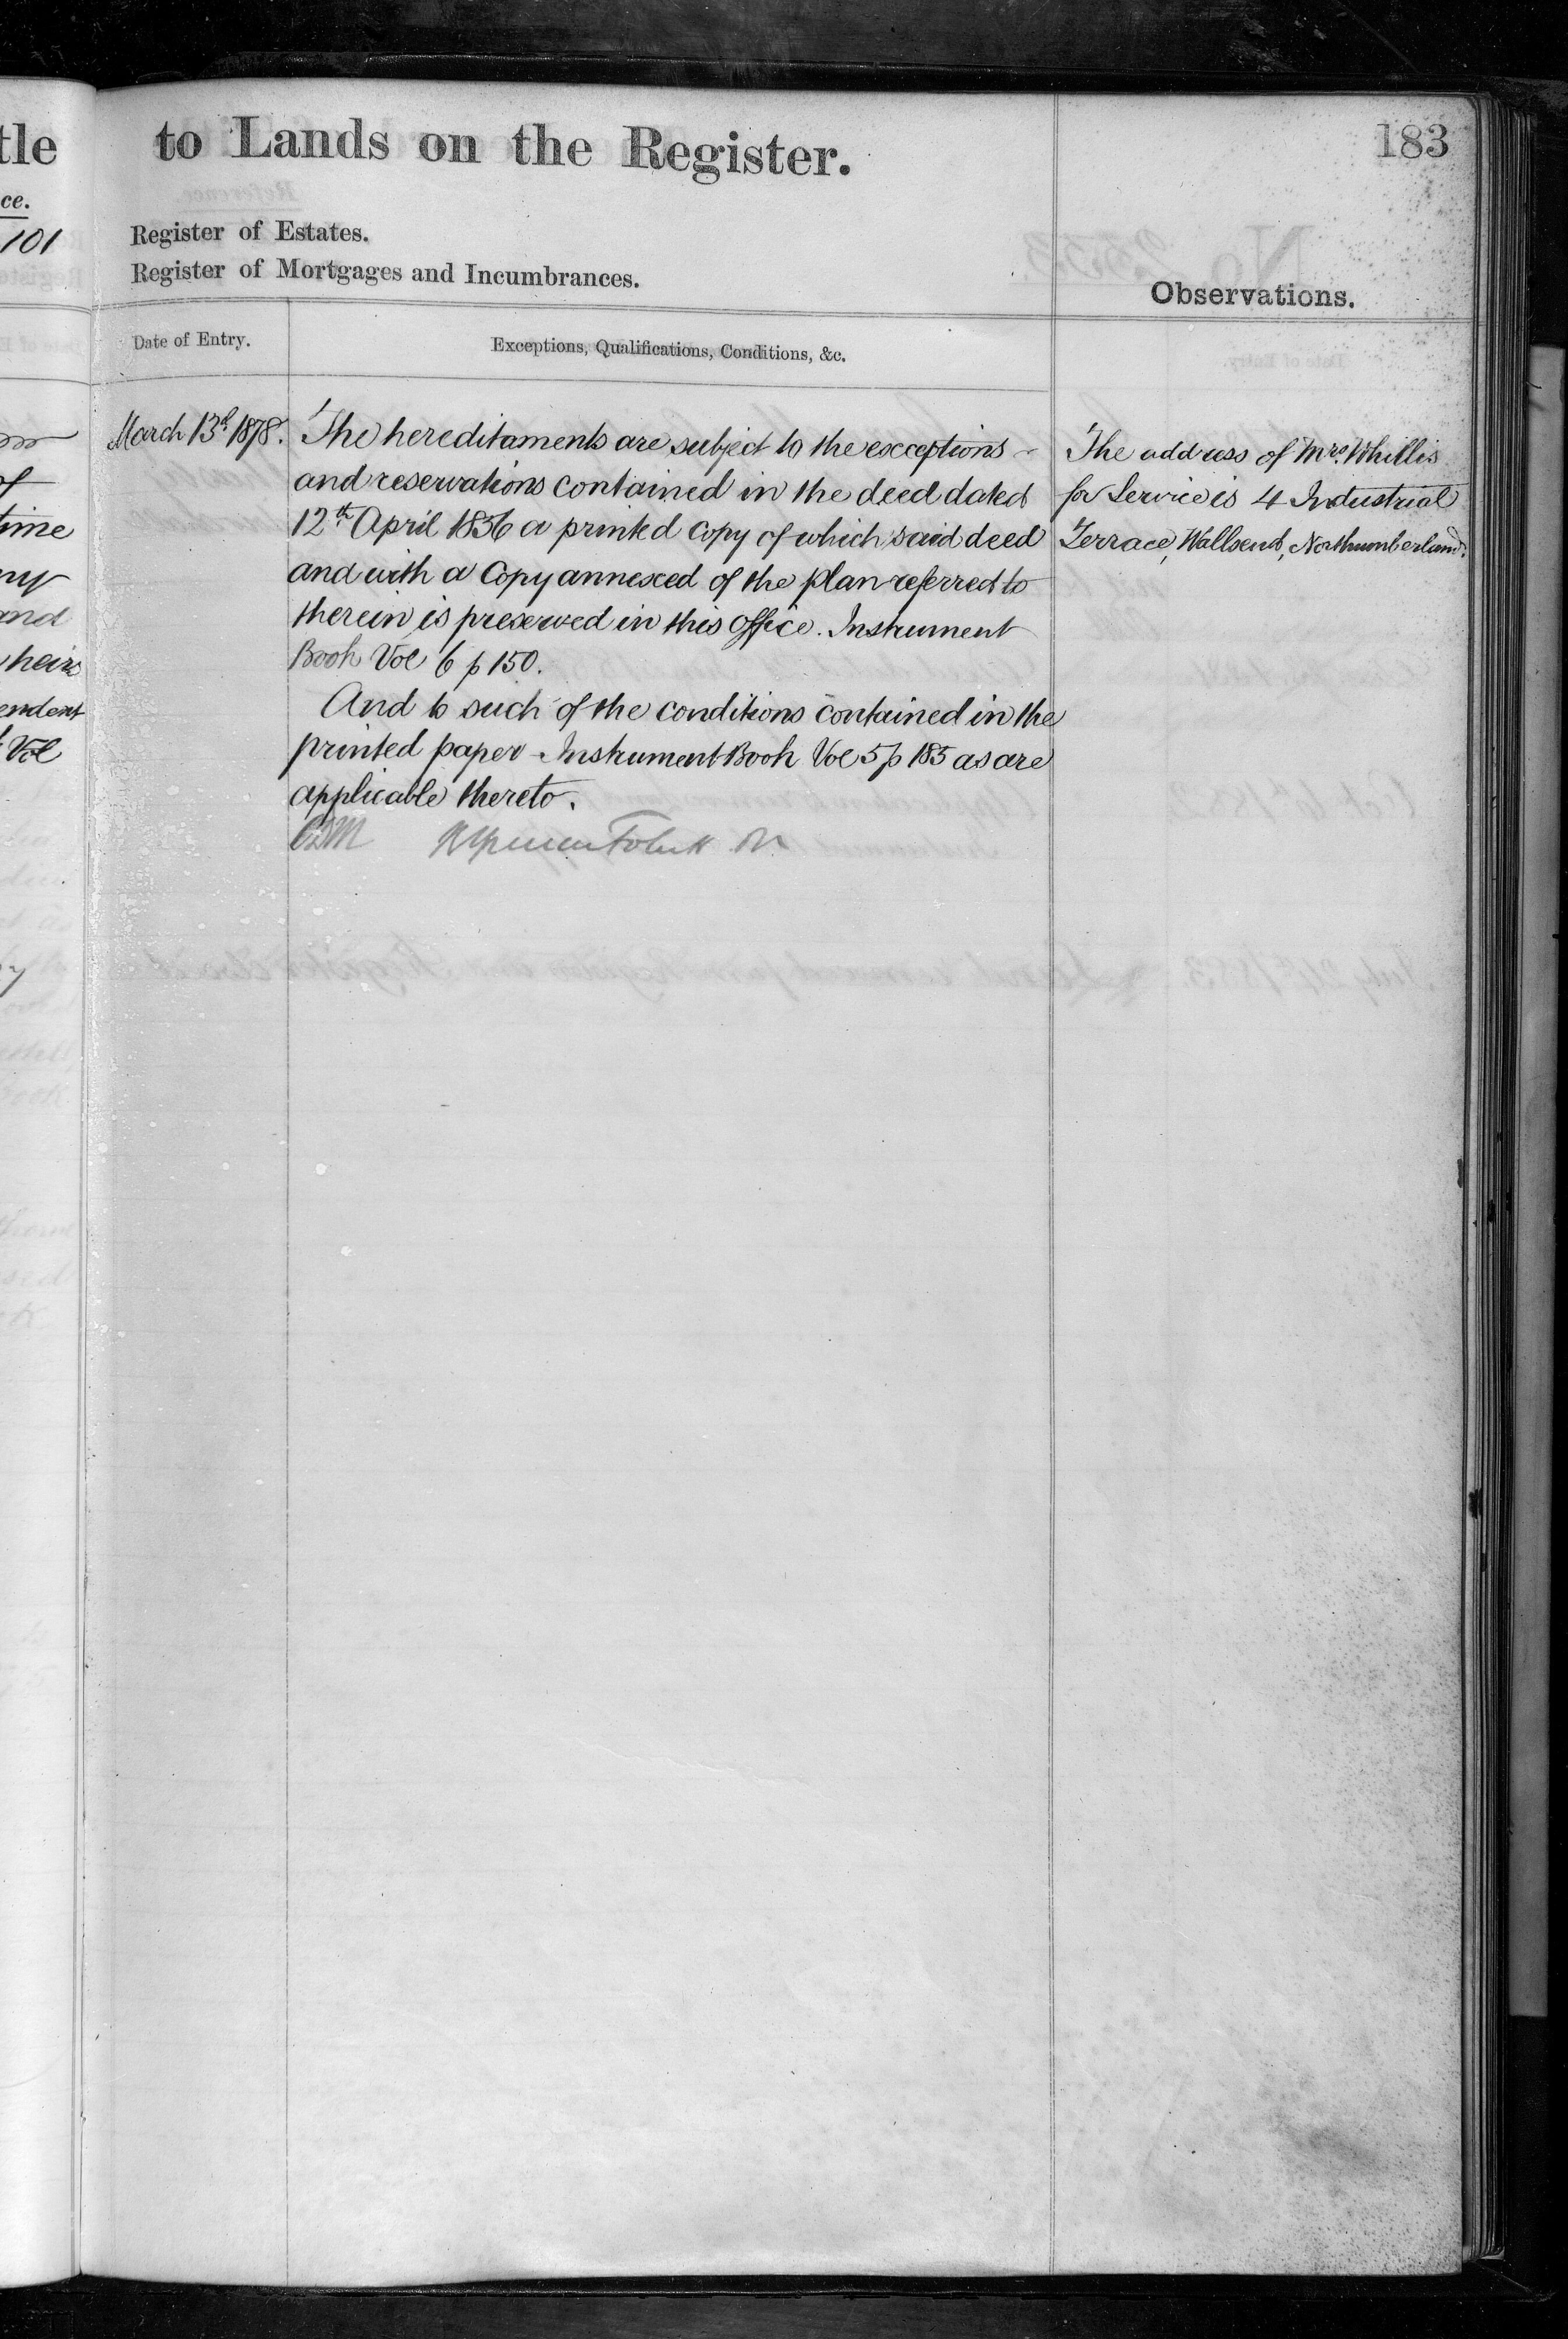 tle
ce.
101
time
and
heirs
endent
Vol
to Lands on the Register.
183
Register of Estates.
Register of Mortgages and Incumbrances.
Observations.
Date of Entry.
Exceptions, Qualifications, Conditions, &c.
March 13th 1878.
The hereditaments are subject to the exceptions
and reservations contained in the deed dated
12th April 1856 a printed copy of which said deed
and with a Copy annexed of the plan referred to
therein is preserved in this Office. Instrument
Book Vol 6 p 150.
And to such of the conditions contained in the
printed paper - Instrument Book Vol 5 p 185 as are
applicable thereto.
The address of Mrs. Whillis
for Service is 4 Industrial
Terrace, Wallsend, Northumberland.